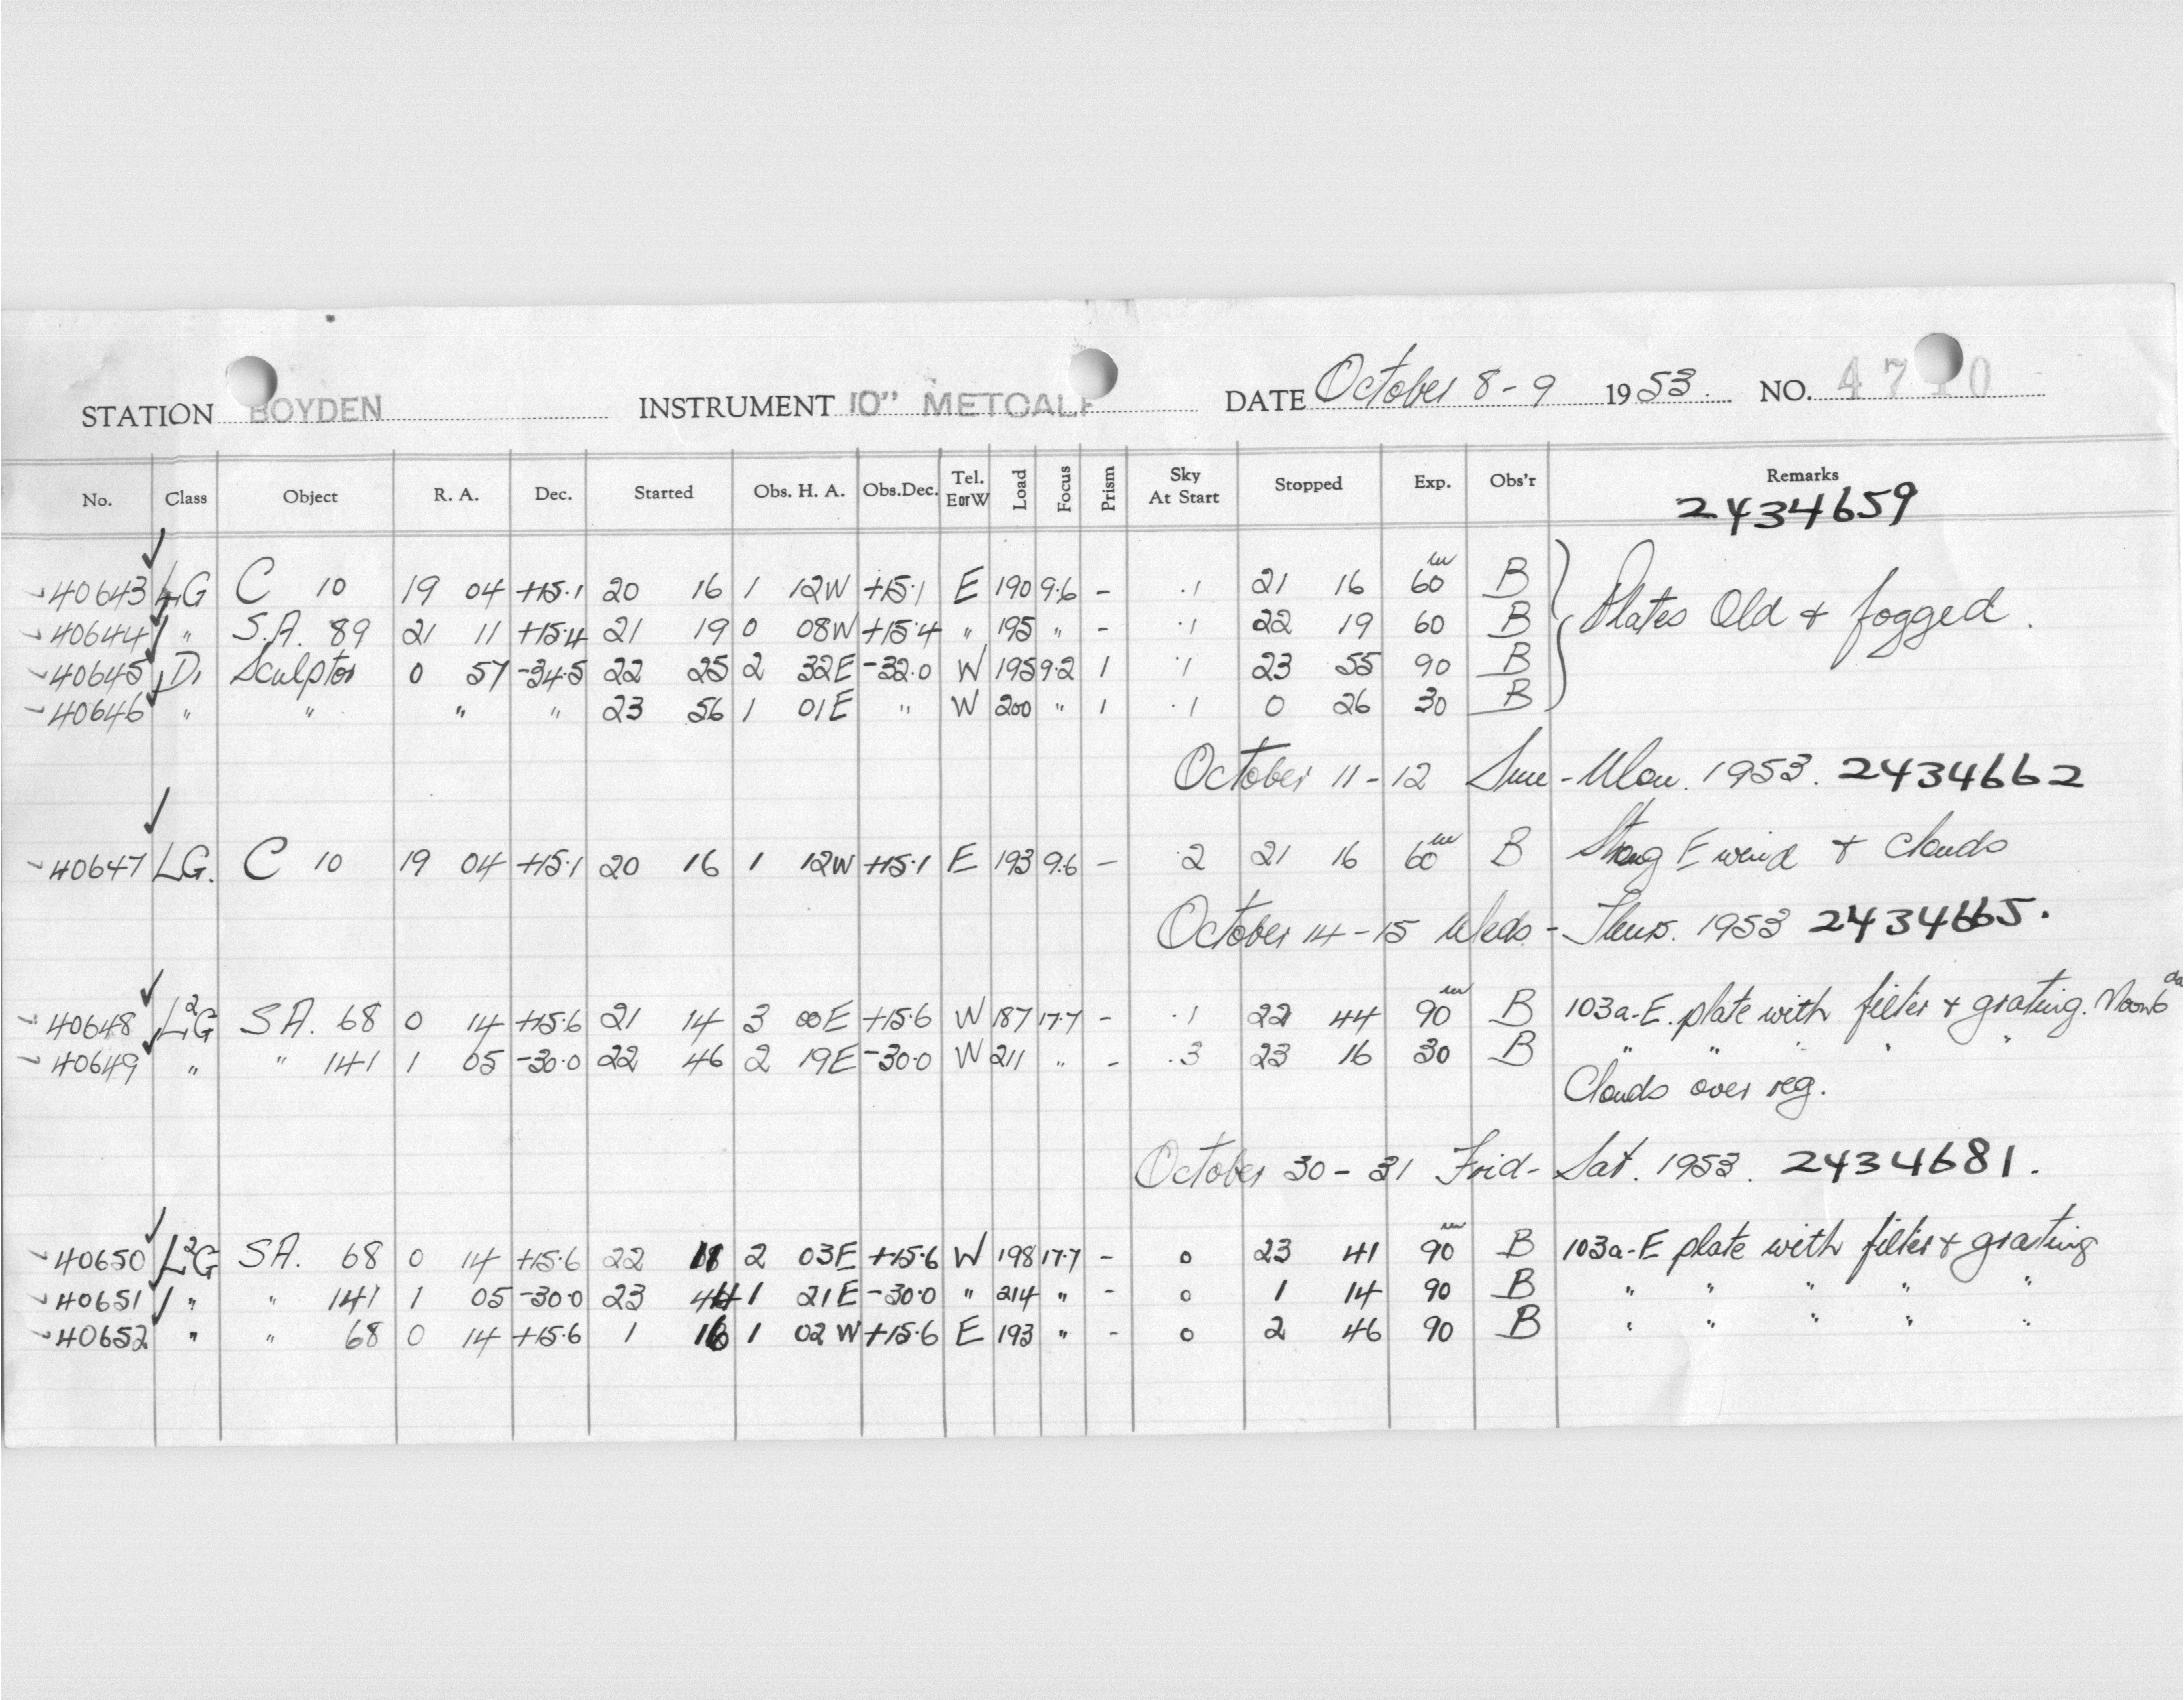 STATION BOYDEN INSTRUMENT 10" METCALF DATE October 8-9 1953. NO. 4710
No. Class Object R. A. Dec. Started Obs. H. A. Obs.Dec. Tel. E or W Load Focus Prism Sky At Start Stopped Exp. Obs'r Remarks
2434659
40643 LG C 10 19 04 +15.1 20 16 1 12W +15.1 E 190 9.6 - .1 21 16 60m B Plates Old + fogged.
40644 " S.A. 89 21 11 +15.4 21 19 0 08W +15.4 " 195 " - .1 22 19 60 B
40645 D, Sculptor 0 57 -34.5 22 25 2 32E -32.0 W 195 9.2 1 .1 23 55 90 B
40646 " " " " 23 56 1 01E " W 200 " 1 .1 0 26 30 B
October 11-12 Sun-Mon. 1953. 2434662
40647 LG. C 10 19 04 +15.1 20 16 1 12W +15.1 E 193 9.6 - .2 21 16 60m B Strong E wind + Clouds
October 14-15 Weds-Thurs. 1953 2434665.
40648 L2G SA. 68 0 14 +15.6 21 14 3 00E +15.6 W 187 17.7 - .1 22 44 90m B 103a-E. plate with filter + grating. Moon 6
40649 " " 141 1 05 -30.0 22 46 2 19E -30.0 W 211 " - .3 23 16 30 B " " " " "
Clouds over reg.
October 30-31 Frid-Sat. 1953. 2434681.
40650 L2G SA. 68 0 14 +15.6 22 11 2 03E +15.6 W 198 17.7 - 0 23 41 90m B 103a-E plate with filter + grating
40651 " " 141 1 05 -30.0 23 44 1 21E -30.0 " 214 " - 0 1 14 90 B " " " " "
40652 " " 68 0 14 +15.6 1 16 1 02W +15.6 E 193 " - 0 2 46 90 B " " " " "